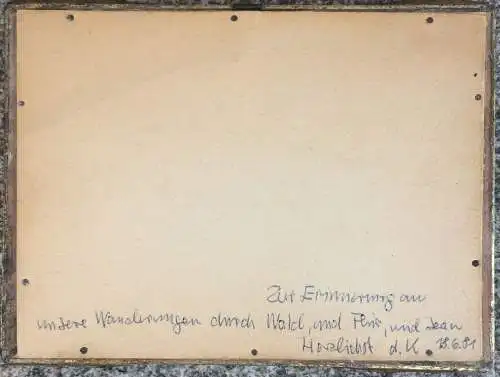 Zur Erinnerung an
unsere Wanderungen durch Wald, und Flur, und
Herzlichst d. K 18.6.81